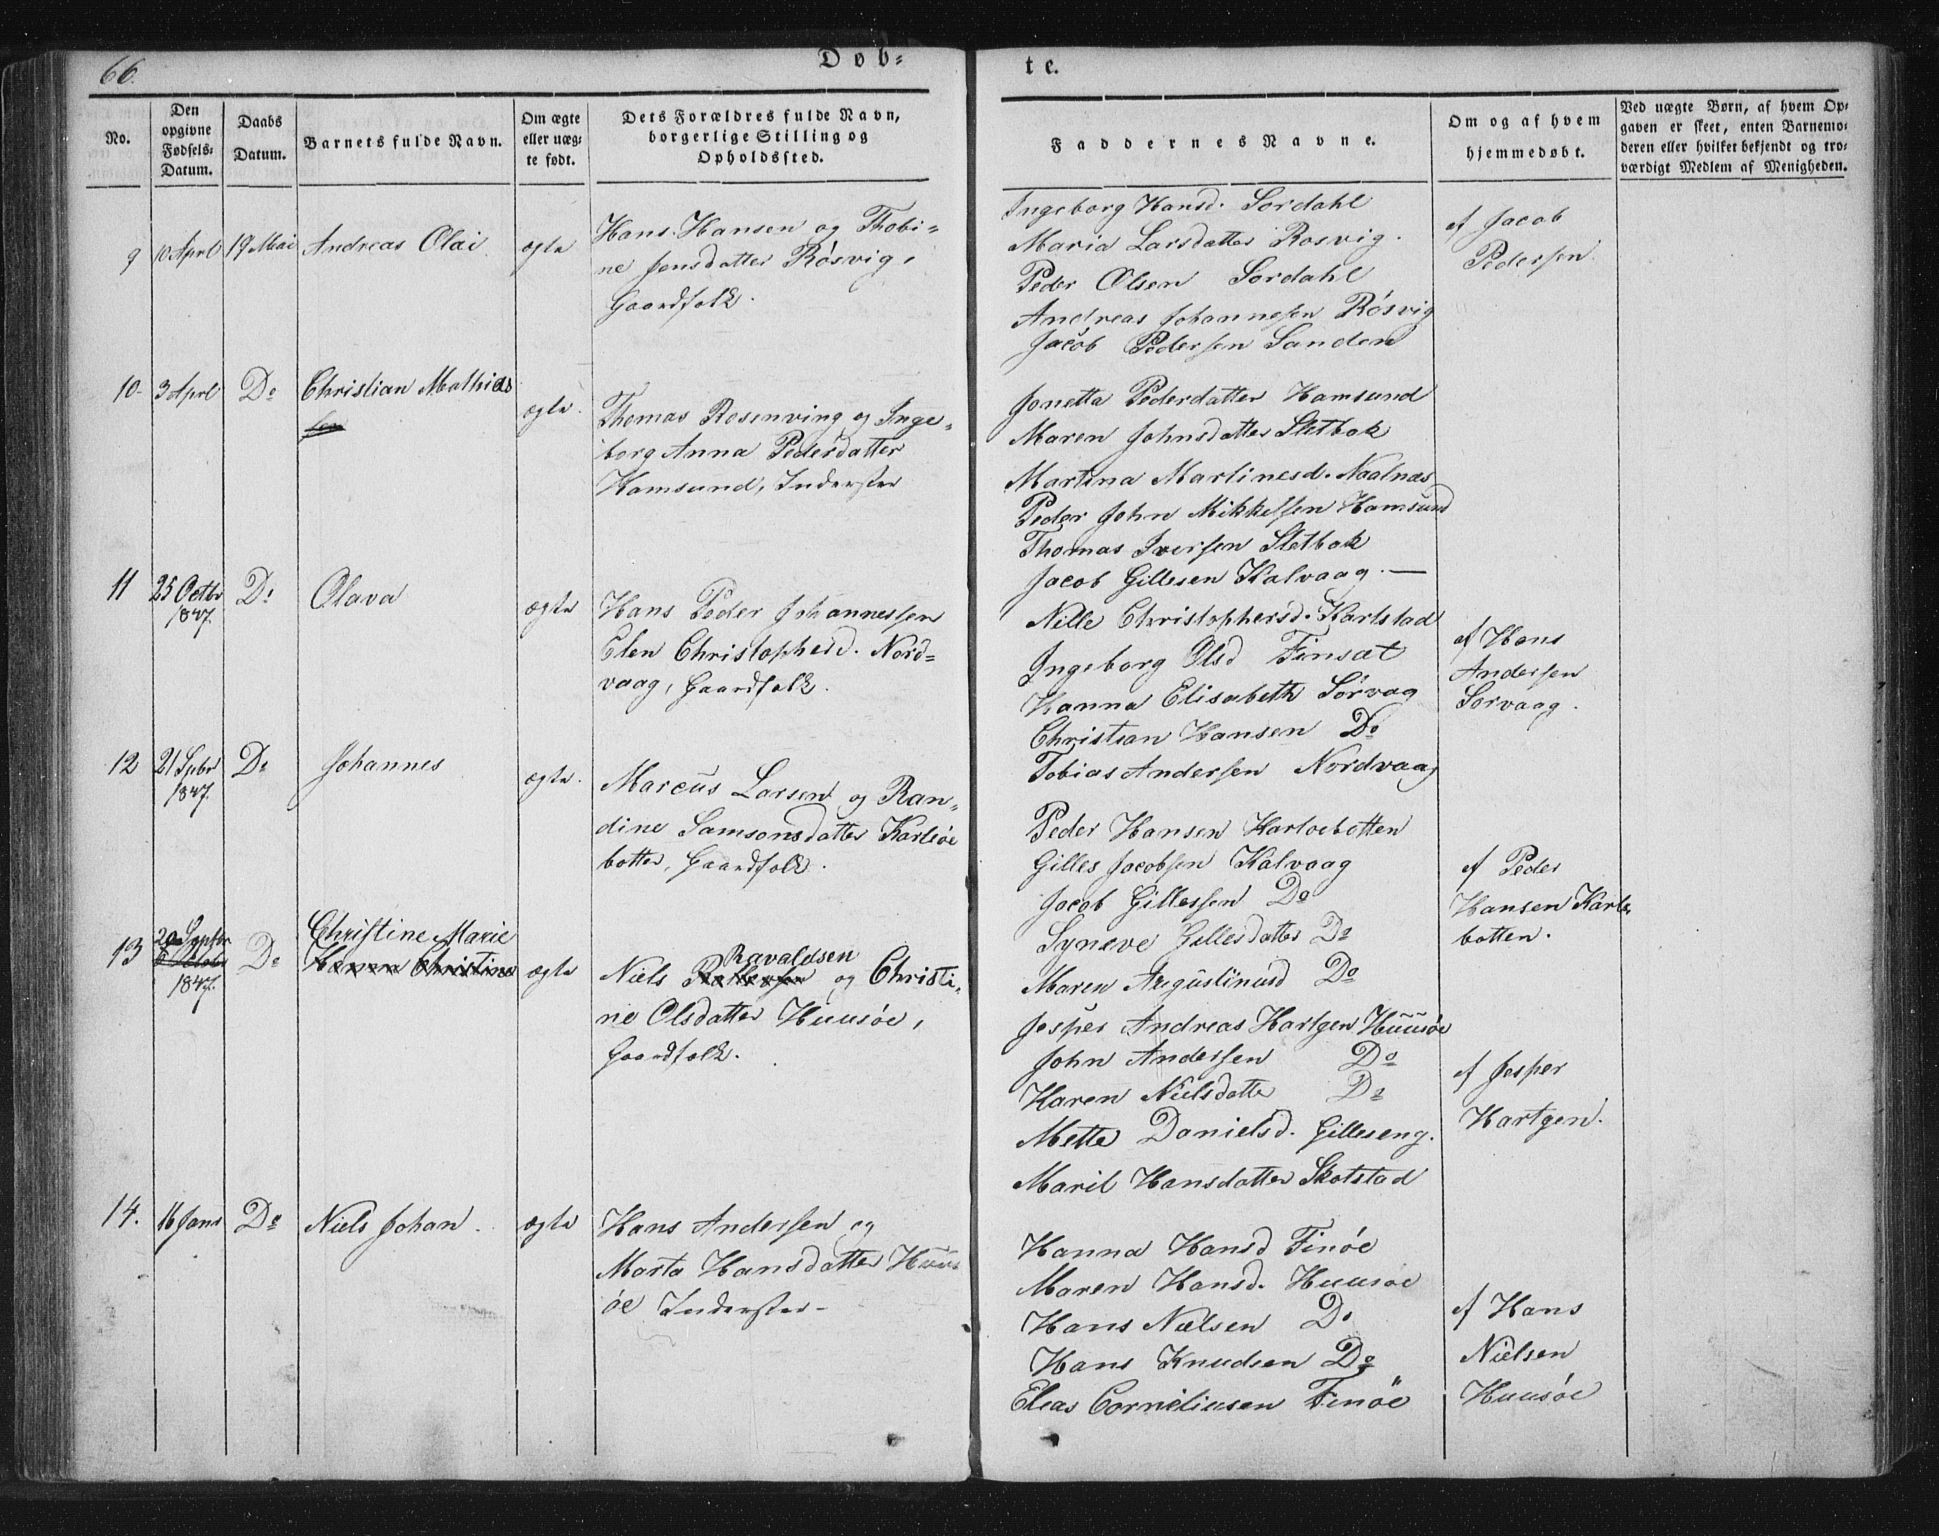 66.
Døb-
te.
No.
Den opgivne Fødsels-Datum.
Daabs Datum.
Barnets fulde Navn.
Om ægte eller uægte født.
Dets Forældres fulde Navn, borgerlige Stilling og Opholdssted.
Faddernes Navne.
Om og af hvem hjemmedøbt.
Ved uægte Børn, af hvem Opgaven er skeet, enten Barnemoderen eller hvilket bekjendt og troværdigt Medlem af Menigheden.
9 10 Aprl 19 Mai Andreas Olai ægte
Hans Hansen og Thobi-
ne Jonsdatter Røsvig,
Gaardfolk.
Ingeborg Hansd. Sørdahl
Maria Larsdatter Rosvig.
Peder Olsen Sørdahl
Andreas Johannesen Røsvig
Jacob Pedersen Sanden
af Jacob
Pedersen
10. 3 Aprl Do Christian Mathias ægte.
sen
Thomas Rosenving og Inge-
borg Anna Pedersdatter
Hamsund, Inderster
Jonetta Pederdatter Hamsund
Maren Johnsdatter Sletbak
Martina Martinesd. Naalnæs
Peder John Mikkelsen Hamsund
Thomas Iversen Sletbak
Jacob Gillesen Kalvaag. —
11 25 Octbr Do Olava ægte
1847.
Hans Peder Johannessen
Elen Christophersd. Nord-
vaag, Gaardfolk.
Nille Christophersd. Karlstad
Ingeborg Olsd Finsæt
Hanna Elisabeth Sørvag
Christian Hansen Do
Tobias Andersen Nordvaag
af Hans
Andersen
Sørvaag.
12 21 Spbr Do Johannes ægte.
1847.
Marcus Larsen og Ran-
dine Samsonsdatter Karlsøe
botten, Gaardfolk.
Peder Hansen Karlsoebotten
Gilles Jacobsen Kalvaag
Jacob Gillessen Do
Syneve Gillesdatter Do
Maren Augustinusd Do
af Peder
Hansen Karls-
botten.
13 20 Septbr Do Christine Marie ægte
Hansen Christine
1847.
Ravaldsen
Niels og Christi-
ne Olsdatter Huusøe,
Gaardfolk.
Jesper Andreas Hartgen Huusøe
John Andersen Do
Karen Nielsdatte Do
Mette Danielsd. Gilleseng.
Maril Hansdatter Skotstad
af Jesper
Hartgen.
14. 16 Janr Do Niels Johan. ægte
Hans Andersen og
Marta Hansdatter Huus
øe Inderster-
Hanna Hansd Finøe
Maren Hansd. Huusøe
Hans Nielsen Do
Hans Knudsen Do
Elias Corneliusen Finøe
af Hans
Nielsen
Huusøe